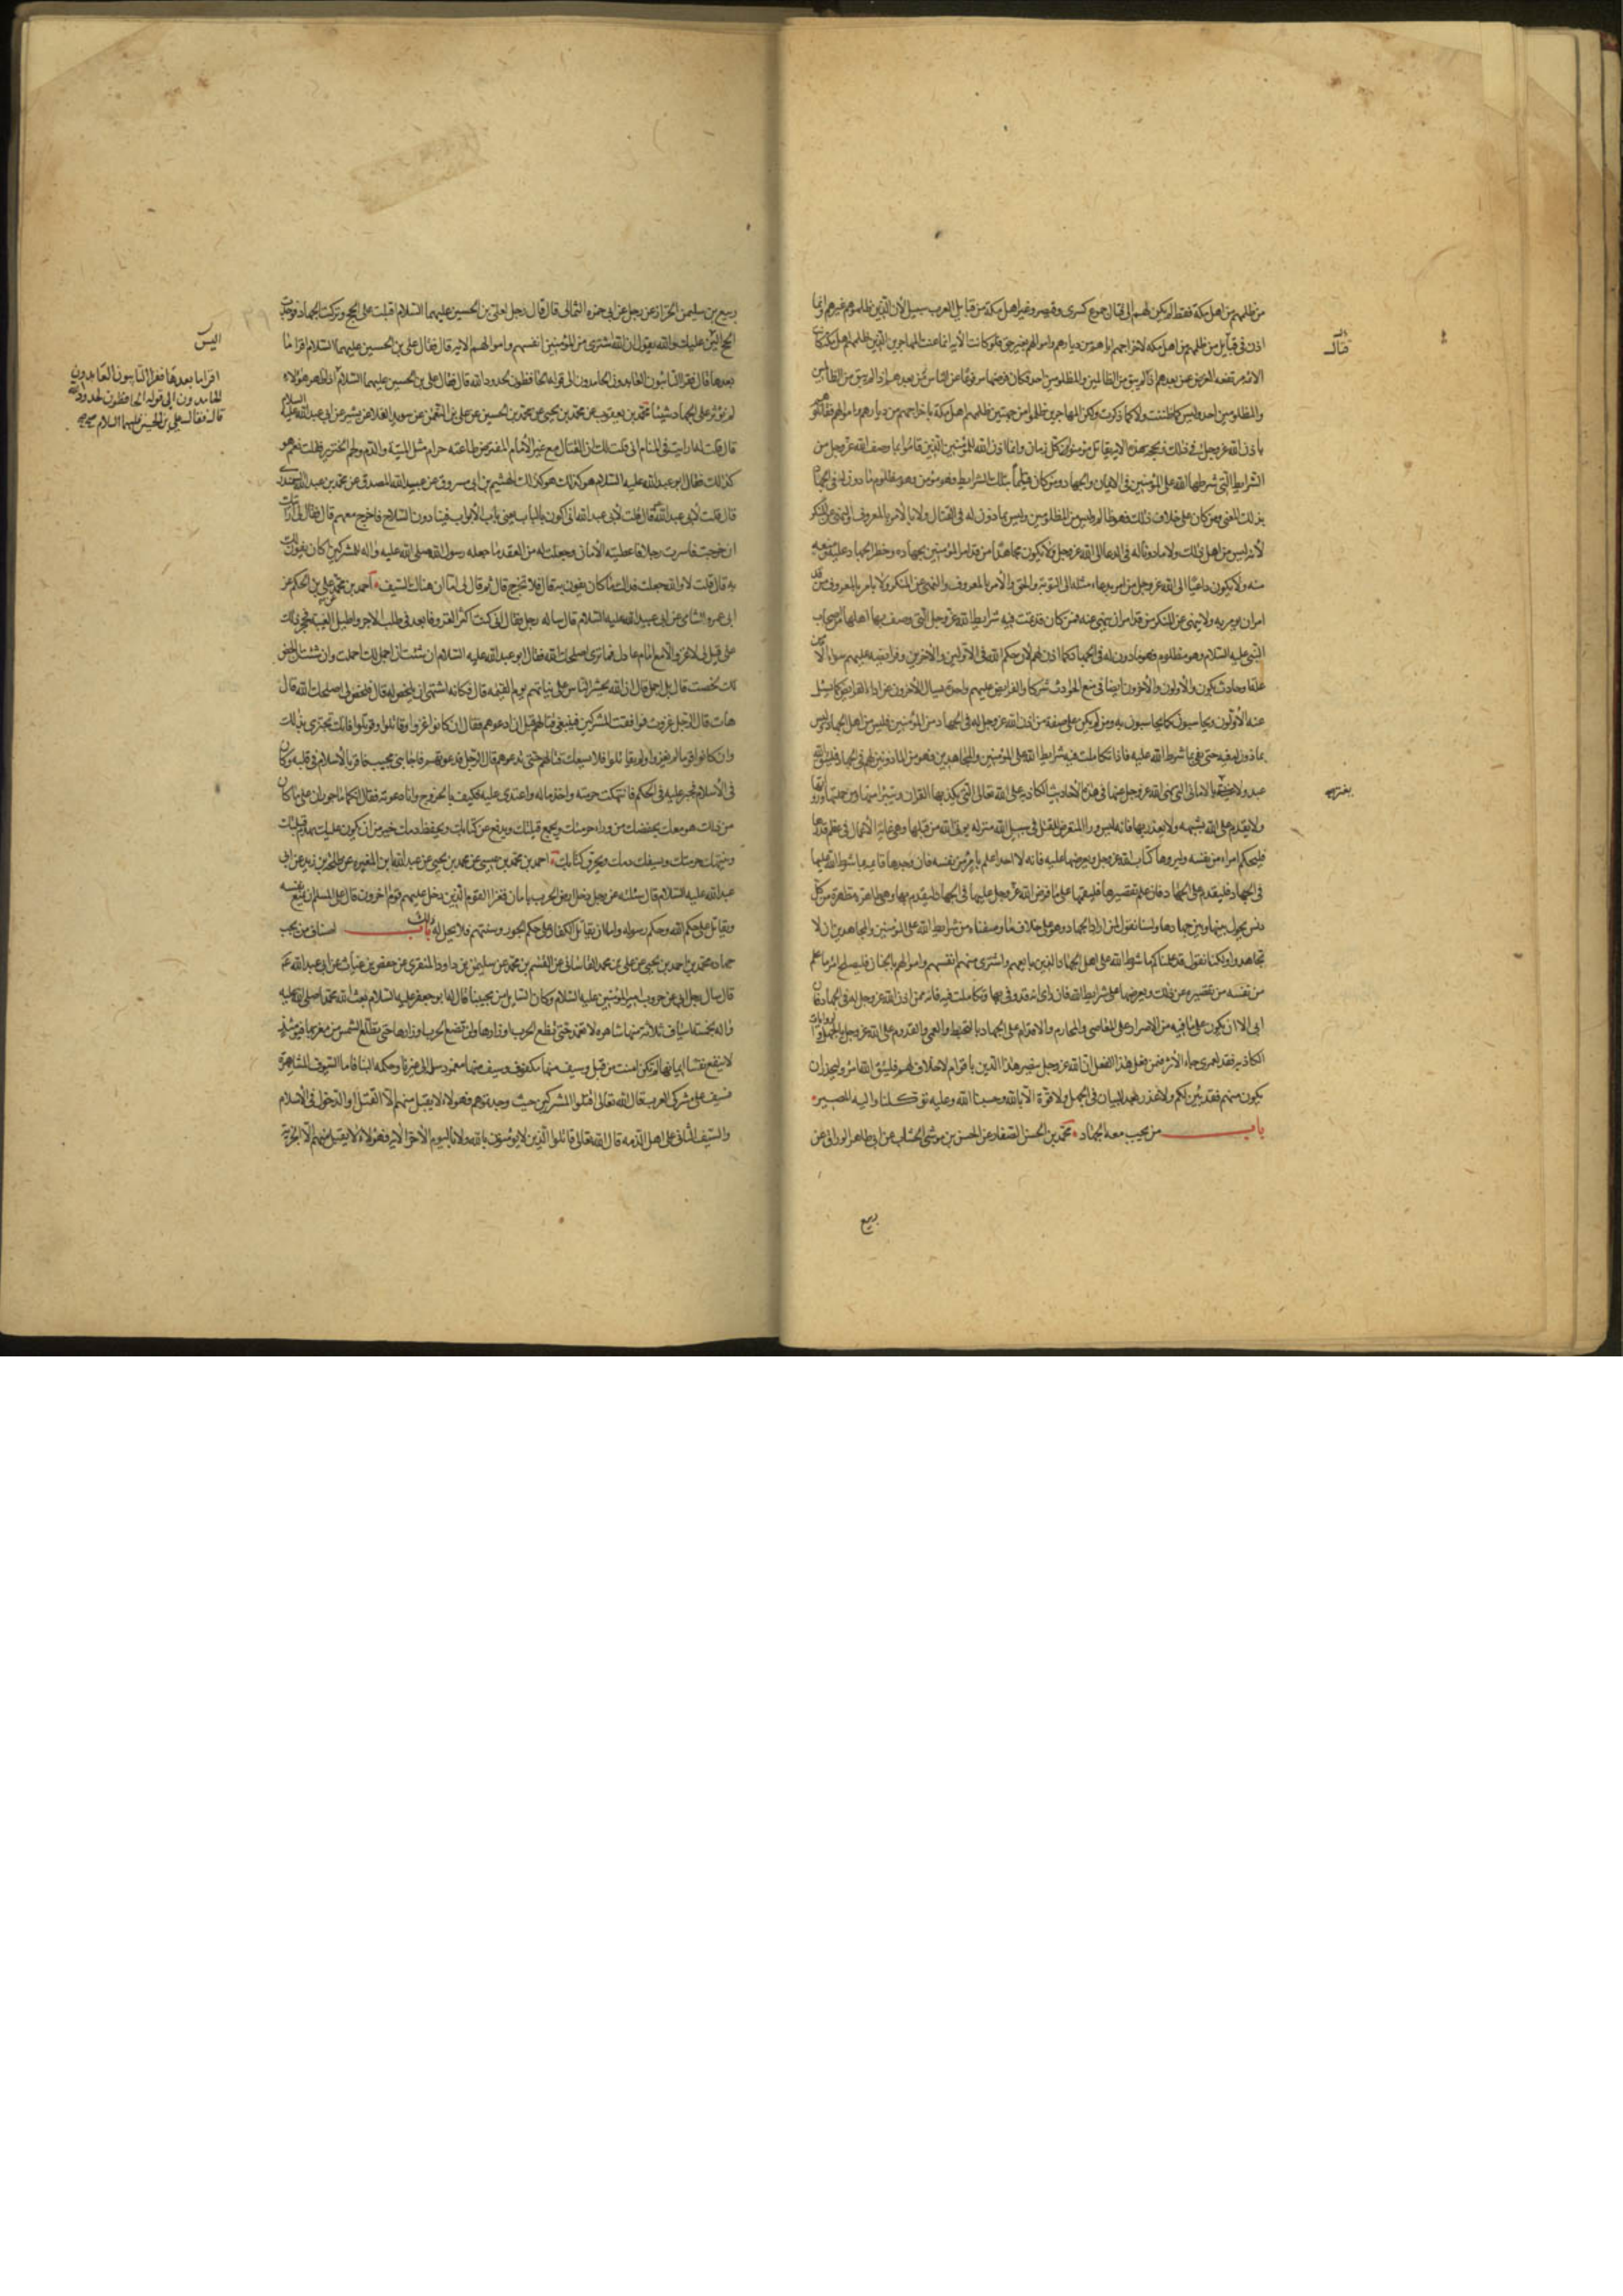 من ظلمهم من اهل مكة فقط لم يكن لهم الى قتال جموع كسرى وقيصر وغير اهل مكة من قبايل العرب سبيل لان الذين ظلموهم غيرهم وانما
اذن فى قتال من ظلمهم من اهل مكة لاخراجهم اياهم من ديارهم واموالهم بغير حق ولو كانت الاية انما عنت المهاجرين الذين ظلمهم اهل مكة كانت
قتال
الاية مرتفعة الفرض عمن بعدهم اذ لم يبق من الظالمين والمظلومين احد وكان فرضها مرفوعا عن الناس بعدهم اذ لم يبق من الظالمين
والمظلومين احد وليس كما ظننت ولا كما ذكرت ولكن المهاجرين ظلموا من جهتين ظلمهم اهل مكة باخراجهم من ديارهم واموالهم فقاتلوهم
باذن الله عز وجل لهم فى ذلك وبحجة هذه الاية يقاتل مؤمنوا كل زمان وانما اذن الله للمؤمنين الذين قاموا بما وصف الله عز وجل من
الشرايط التى شرطها الله على المؤمنين فى الايمان والجهاد ومن كان قائما بتلك الشرايط فهو مؤمن وهو مظلوم ماذون له فى الجهاد
بذلك المعنى ومن كان على خلاف ذلك فهو ظالم وليس من المظلومين وليس بماذون له فى القتال ولا بالامر بالمعروف والنهى عن المنكر
لانه ليس من اهل ذلك ولا ماذون له فى الدعاء الى الله عز وجل ولا يكون مجاهدا من قد امر المؤمنين بجهاده وحظر الجهاد عليه ومنعه
منه ولا يكون داعيا الى الله عز وجل من امر بدعاء مثله الى التوبة والحق والامر بالمعروف والنهى عن المنكر ولا يامر بالمعروف من قد
امر ان يؤمر به ولا ينهى عن المنكر من قد امر ان ينهى عنه فمن كان قد تمت فيه شرايط الله عز وجل التى وصف بها اهلها من اصحاب
النبى عليه السلام وهو مظلوم فهو ماذون له فى الجهاد كما اذن لهم لان حكم الله فى الاولين والاخرين وفرايضه عليهم سواء الا من
علة او حادث يكون والاولون والاخرون ايضا فى منع الحوادث شركاء والفرايض عليهم واحدة يسال الاخرون عن اداء الفرايض كما يسئل
عنه الاولون ويحاسبون كما يحاسبون به ومن لم يكن على صفة من اذن الله عز وجل له فى الجهاد من المؤمنين فليس من اهل الجهاد وليس
بماذون له فيه حتى يفى بما شرط الله عليه فاذا تكاملت فيه شرايط الله على المؤمنين والمجاهدين فهو من الماذونين لهم فى الجهاد فليتق الله
عبد ولا يغتر بالامانى التى نهى الله عز وجل عنها فى هذه الاحاديث الكاذبة على الله تعالى التى يكذبها القران ويتبرا منها ومن حملتها ورواتها
يغتر به
ولا يقدم على الله بشبهة ولا يعذر بها فانه ليس وراء المتعرض للقتل فى سبيل الله منزلة يوتى الله من قبلها وهى غاية الاعمال فى عظم قدرها
فليحكم امرء من نفسه وليروها كتاب الله عز وجل ويعرضها عليه فانه لا احد اعلم بامرء من نفسه فان وجدها قايمة بما شرط الله عليها
فى الجهاد فليقدم على الجهاد فان علم تقصيرها فليقمها على ما فرض الله عز وجل عليها فى الجهاد ثم ليقدم بها وهى طاهرة مطهرة من كل
دنس يحول بينها وبين جهادها ولسنا نقول لمن اراد الجهاد وهو على خلاف ما وصفناه من شرايط الله على المؤمنين والمجاهدين ان لا
تجاهدوا ولكنا نقول قد علمناكم ما شرط الله على اهل الجهاد الذين بايعهم واشترى منهم انفسهم واموالهم بالجنان فليصلح امرء ما علم
من نفسه من تقصيره عن ذلك ويعرضها على شرايط الله فان راى انه قد وفى بها وتكاملت فيه فانه ممن اذن الله عز وجل له فى الجهاد فان
ابى الا ان يكون على ما فيه من الاصرار على المعاصى والمحارم والاقدام على الجهاد بالتخبيط والعمى والقدوم على الله عز وجل بالجهل والروايات
الكاذبة فقد لعمرى جاء الاثر فمن فعل هذا الفعل ان الله عز وجل ينصر هذا الدين باقوام لاخلاق لهم فليتق الله امرء وليحذر ان
يكون منهم فقد بين لكم ولا عذر لكم بعد البيان فى الجهل ولا قوة الا بالله وحسبنا الله وعليه توكلنا واليه المصير
باب من يجب معه الجهاد محمد بن الحسن الصفار عن الحسن بن موسى الخشاب عن ابى طاهر الوراق عن
ربيع
ربيع بن سليمن الخزاز عن رجل عن ابى حمزه الثمالى قال قال رجل لعلى بن الحسين عليهما السلام اقبلت على الحج وتركت الجهاد فوجدت
الحج الين عليك والله يقول ان الله اشترى من المؤمنين انفسهم واموالهم الاية قال فقال على بن الحسين عليهما السلام اقرا ما
اليس
بعدها قال فقرا التائبون العابدون الحامدون الى قوله الحافظون لحدود الله قال فقال على بن الحسين عليهما السلام اذا ظهر هؤلاء
اقرا ما بعدها فقرا التائبون العابدون
الحامدون الى قوله الحافظون لحدود الله
قال فقال على بن الحسين عليهما السلام
لم نؤثر على الجهاد شيئا محمد بن يعقوب عن محمد بن يحيى عن محمد بن الحسين عن على بن النعمن عن سويد القلاء عن بشير عن ابى عبد الله عليه السلام
قال قلت له رايت فى المنام انى قلت لك ان القتال مع غير الامام المفترض طاعته حرام مثل الميتة والدم ولحم الخنزير فقلت نعم هو
كذلك فقال ابو عبد الله عليه السلام هو كذلك هو كذلك الهيثم بن ابى مسروق عن عبد الله المصدق عن محمد بن عبد الله السمندرى
قال قلت لابى عبد الله قال قلت لابى عبد الله انى اكون بالباب يعنى باب الابواب فينادون السلاح فاخرج معهم قال فقال لى ارايت
ان خرجت فاسرت رجلا فاعطيته الامان وجعلت له من العقد ما جعله رسول الله صلى الله عليه واله للمشركين كان يفون لك
به قال قلت لا والله جعلت فداك ما كان يفون به قال فلا تخرج قال ثم قال لى اما ان هناك السيف احمد بن محمد عن على بن الحكم عن
ابى عمره الشامى عن ابى عبد الله عليه السلام قال ساله رجل فقال انى كنت اكثر الغزو فابعد فى طلب الاجر واطيل الغيبة فحجر ذلك
على قيل لى لا غزو الا مع امام عادل فما ترى اصلحك الله فقال ابو عبد الله عليه السلام ان شئت ان اجمل لك اجملت وان شئت ان الخص
لك لخصت قال بل اجمل قال ان الله يحشر الناس على نياتهم يوم القيمة قال فكانه اشتهى ان يلخص له قال فلخص لى اصلحك الله قال
هات قال الرجل غزوت فوافقت المشركين فينبغى قتالهم قبل ان ادعوهم فقال ان كانوا غزوا وقاتلوا وقوتلوا فانك تجتزى بذلك
وان كانوا قوما لم يغزوا ولم يقاتلوا فلا يسعك قتالهم حتى تدعوهم قال الرجل فدعوتهم فاجابنى مجيب فاقر بالاسلام فى قلبه وكان
فى الاسلام فجير عليه فى الحكم فانتهكت حرمته واخذ ماله واعتدى عليه فكيف بالخروج وانا دعوته فقال انكما ماجوران على ما كان
من ذلك هو معك يحفظك من وراء حرمتك ويمنع قبلتك ويدفع عن كتابك ويحفظ دمك خير من ان يكون عليك يهدم قبلتك
وينتهك حرمتك ويسفك دمك ويحرق كتابك احمد بن محمد بن عيسى عن محمد بن يحيى عن عبد الله بن المغيره عن طلحة بن زيد عن ابى
عبد الله عليه السلام قال سئلته عن رجل دخل ارض الحرب بامان فغزا القوم الذين دخل عليهم قوم اخرون قال على المسلم ان يمنع نفسه
ويقاتل على حكم الله وحكم رسوله واما ان يقاتل الكفار على حكم الجور وسنتهم فلا يحل له ذلك باب اصناف من يجب
جهاده محمد بن احمد بن يحيى عن على بن محمد القاسانى عن القسم بن محمد عن سليمن بن داود المنقرى عن حفص بن غياث عن ابى عبد الله ع
قال سال رجل ابى عن حروب امير المؤمنين عليه السلام وكان السايل من محبينا قال له ابو جعفر عليه السلام بعث الله محمدا صلى الله عليه
واله بخمسة اسياف ثلاثة منها شاهره لا تغمد حتى تضع الحرب اوزارها ولن تضع الحرب اوزارها حتى تطلع الشمس من مغربها فيومئذ
لا ينفع نفسا ايمانها لم تكن امنت من قبل وسيف منها مكفوف وسيف منها مغمود سله الى غيرنا وحكمه الينا فاما السيوف الشاهرة
فسيف على مشركى العرب قال الله تعالى اقتلوا المشركين حيث وجدتموهم فهؤلاء لا يقبل منهم الا القتل او الدخول فى الاسلام
والسيف الثانى على اهل الذمه قال الله تعالى قاتلوا الذين لا يؤمنون بالله ولا باليوم الاخر الاية فهؤلاء لا يقبل منهم الا الجزية